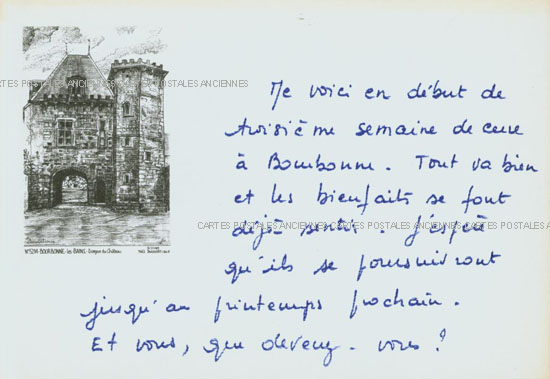 CARTES POSTALES ANCIENNES CARTES POSTALES ANCIENNES
Me voici en début de
troisième semaine de cure
à Bourbonne. Tout va bien
et les bienfaits se font
CARTES POSTALES ANCIENNES CARTES POSTALES ANCIENNES CARTES POSTALES
déjà sentir. J'espère
qu'ils se poursuivront
jusqu'au printemps prochain.
Et vous, que devenez-vous ?
N°5214 BOURBONNE-les-BAINS - Donjon du Château